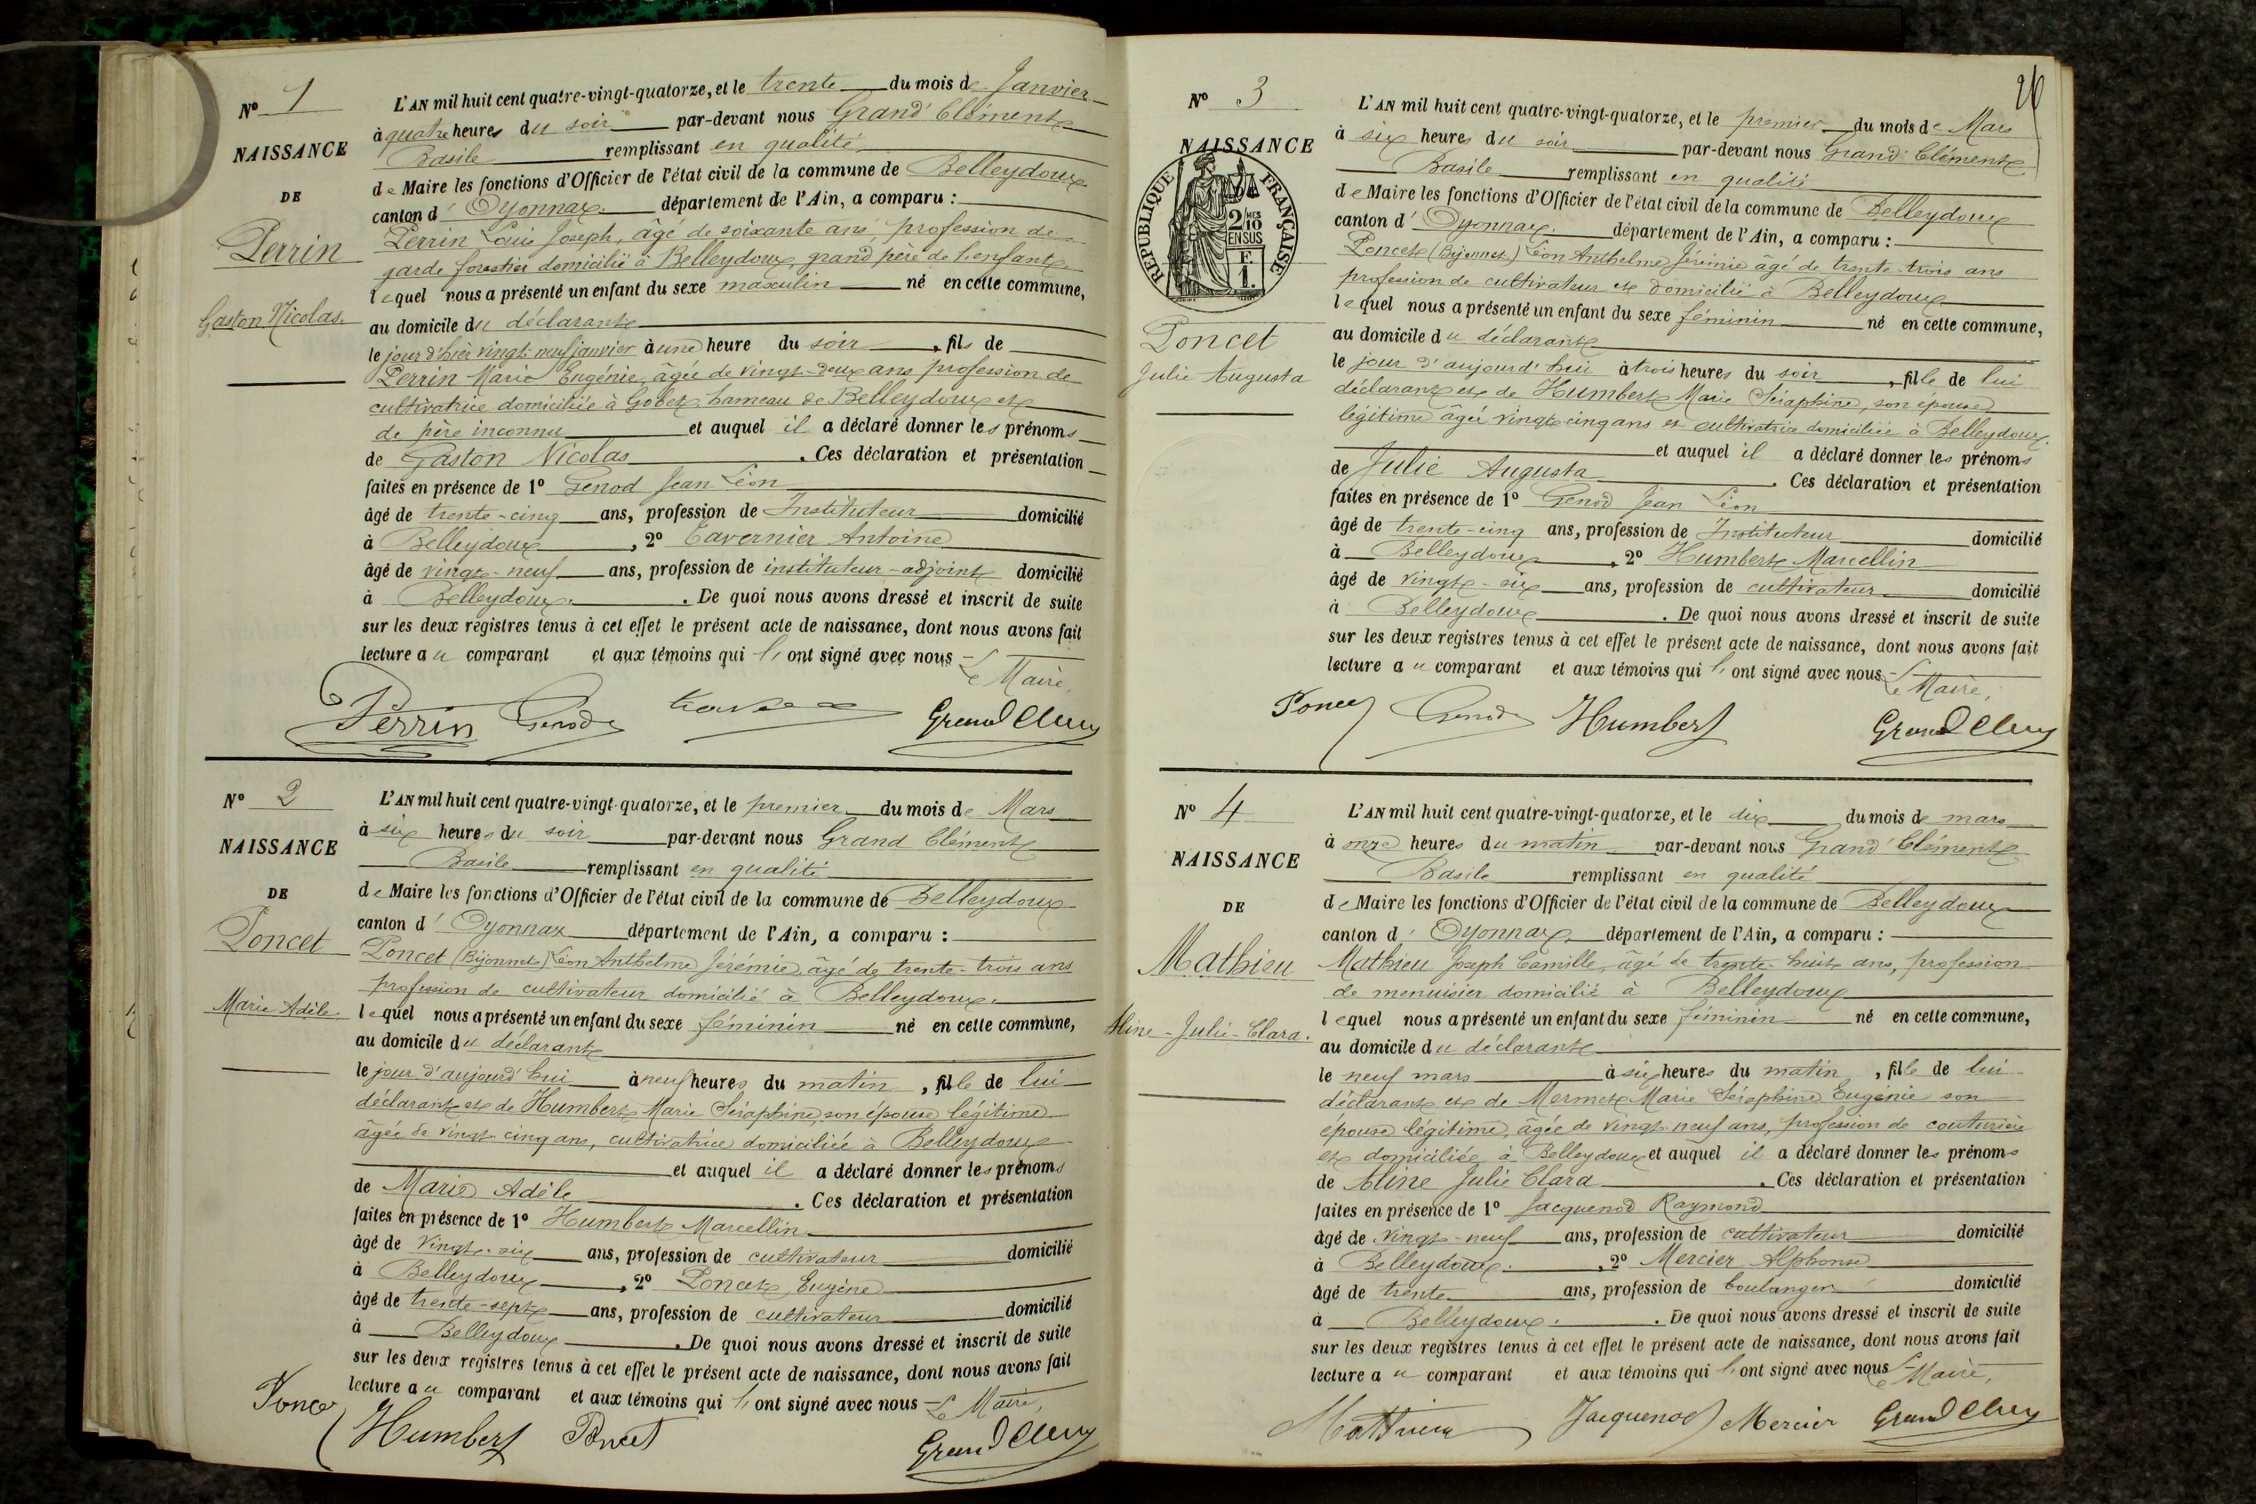 Nº 1
NAISSANCE
DE
Perrin
Gaston Nicolas.
L'AN mil huit cent quatre-vingt-quatorze, et le trente du mois de Janvier
à quatre heures du soir par-devant nous Grand Clément
Basile remplissant en qualité
de Maire les fonctions d'Officier de l'état civil de la commune de Belleydoux
canton d' Oyonnax. département de l'Ain, a comparu :
Perrin Louis Joseph, âgé de soixante ans, profession de
garde forestier domicilié à Belleydoux, grand père de l'enfant
lequel nous a présenté un enfant du sexe masculin né en cette commune,
au domicile du déclarant
le jour d'hier vingt-neuf janvier à une heure du soir, fils de
Perrin Marie Eugénie, âgée de vingt-deux ans profession de
cultivatrice domiciliée à Gobet, hameau de Belleydoux et
de père inconnu et auquel il a déclaré donner les prénoms
de Gaston Nicolas. Ces déclaration et présentation
faites en présence de 1º Genod Jean Léon
âgé de trente-cinq ans, profession de Instituteur domicilié
à Belleydoux, 2º Tavernier Antoine
âgé de vingt-neuf ans, profession de instituteur-adjoint domicilié
à Belleydoux. De quoi nous avons dressé et inscrit de suite
sur les deux registres tenus à cet effet le présent acte de naissance, dont nous avons fait
lecture au comparant et aux témoins qui l'ont signé avec nous
Le Maire,
Perrin Genod Grand Clém
Nº 2
NAISSANCE
DE
Poncet
Marie Adèle.
L'AN mil huit cent quatre-vingt-quatorze, et le premier du mois de Mars
à six heures du soir par-devant nous Grand Clément
Basile remplissant en qualité
de Maire les fonctions d'Officier de l'état civil de la commune de Belleydoux
canton d' Oyonnax département de l'Ain, a comparu :
Poncet (Bijonnet) Léon Anthelme Jérémie, âgé de trente-trois ans
profession de cultivateur domicilié à Belleydoux.
lequel nous a présenté un enfant du sexe féminin né en cette commune,
au domicile du déclarant
le jour d'aujourd'hui à neuf heures du matin, fille de lui
déclarant et de Humbert Marie Séraphine, son épouse légitime
âgée de vingt-cinq ans, cultivatrice domiciliée à Belleydoux
et auquel il a déclaré donner les prénoms
de Marie Adèle. Ces déclaration et présentation
faites en présence de 1º Humbert Marcellin
âgé de vingt-six ans, profession de cultivateur domicilié
à Belleydoux, 2º Poncet Eugène
âgé de trente-sept ans, profession de cultivateur domicilié
à Belleydoux. De quoi nous avons dressé et inscrit de suite
sur les deux registres tenus à cet effet le présent acte de naissance, dont nous avons fait
lecture au comparant et aux témoins qui l'ont signé avec nous
Le Maire,
Poncet Humbert Poncet Grand Clém
26
Nº 3
NAISSANCE
RÉPUBLIQUE FRANÇAISE
2/10 MES
EN SUS
F.
1.
Poncet
Julie Augusta
L'AN mil huit cent quatre-vingt-quatorze, et le premier du mois de Mars
à six heures du soir par-devant nous Grand Clément
Basile remplissant en qualité
de Maire les fonctions d'Officier de l'état civil de la commune de Belleydoux
canton d' Oyonnax. département de l'Ain, a comparu :
Poncet (Bijonnet) Léon Anthelme Jérémie âgé de trente-trois ans
profession de cultivateur et domicilié à Belleydoux
lequel nous a présenté un enfant du sexe féminin né en cette commune,
au domicile du déclarant
le jour d'aujourd'hui à trois heures du soir, fille de lui
déclarant et de Humbert Marie Séraphine, son épouse
légitime âgée vingt-cinq ans et cultivatrice domiciliée à Belleydoux.
et auquel il a déclaré donner les prénoms
de Julie Augusta. Ces déclaration et présentation
faites en présence de 1º Genod Jean Léon
âgé de trente-cinq ans, profession de Instituteur domicilié
à Belleydoux, 2º Humbert Marcellin
âgé de vingt-six ans, profession de cultivateur domicilié
à Belleydoux. De quoi nous avons dressé et inscrit de suite
sur les deux registres tenus à cet effet le présent acte de naissance, dont nous avons fait
lecture au comparant et aux témoins qui l'ont signé avec nous
Le Maire,
Poncet Genod Humbert Grand Clém
Nº 4
NAISSANCE
DE
Mathieu
Aline-Julie-Clara.
L'AN mil huit cent quatre-vingt-quatorze, et le dix du mois de mars
à onze heures du matin par-devant nous Grand Clément
Basile remplissant en qualité
de Maire les fonctions d'Officier de l'état civil de la commune de Belleydoux
canton d' Oyonnax. département de l'Ain, a comparu :
Mathieu Joseph Camille, âgé de trente-huit ans, profession
de menuisier domicilié à Belleydoux
lequel nous a présenté un enfant du sexe féminin né en cette commune,
au domicile du déclarant
le neuf mars à six heures du matin, fille de lui
déclarant et de Mermet Marie Séraphine Eugénie son
épouse légitime, âgée de vingt-neuf ans, profession de couturière
et domiciliée à Belleydoux et auquel il a déclaré donner les prénoms
de Aline Julie Clara. Ces déclaration et présentation
faites en présence de 1º Jacquenod Raymond
âgé de vingt-neuf ans, profession de cultivateur domicilié
à Belleydoux. , 2º Mercier Alphonse
âgé de trente ans, profession de boulanger domicilié
à Belleydoux. De quoi nous avons dressé et inscrit de suite
sur les deux registres tenus à cet effet le présent acte de naissance, dont nous avons fait
lecture au comparant et aux témoins qui l'ont signé avec nous
Le Maire,
Mathieu Jacquenod Mercier Grand Clém